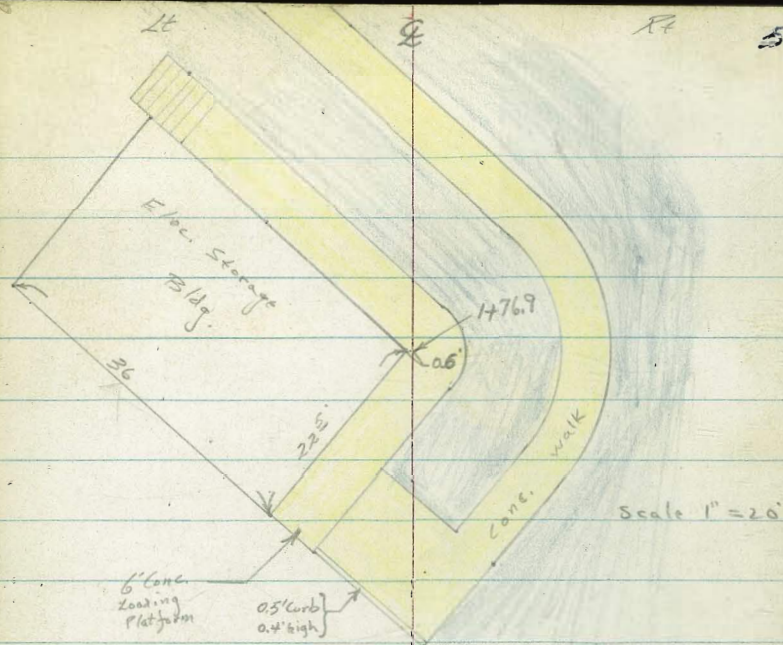 Lt
℄
Rt
Elec. Storage
Bldg.
1+76.9
0.6'
36
22.5'
conc. walk
Scale 1" = 20'
6" Conc.
Loading
Platform
0.5' Curb
0.4' high